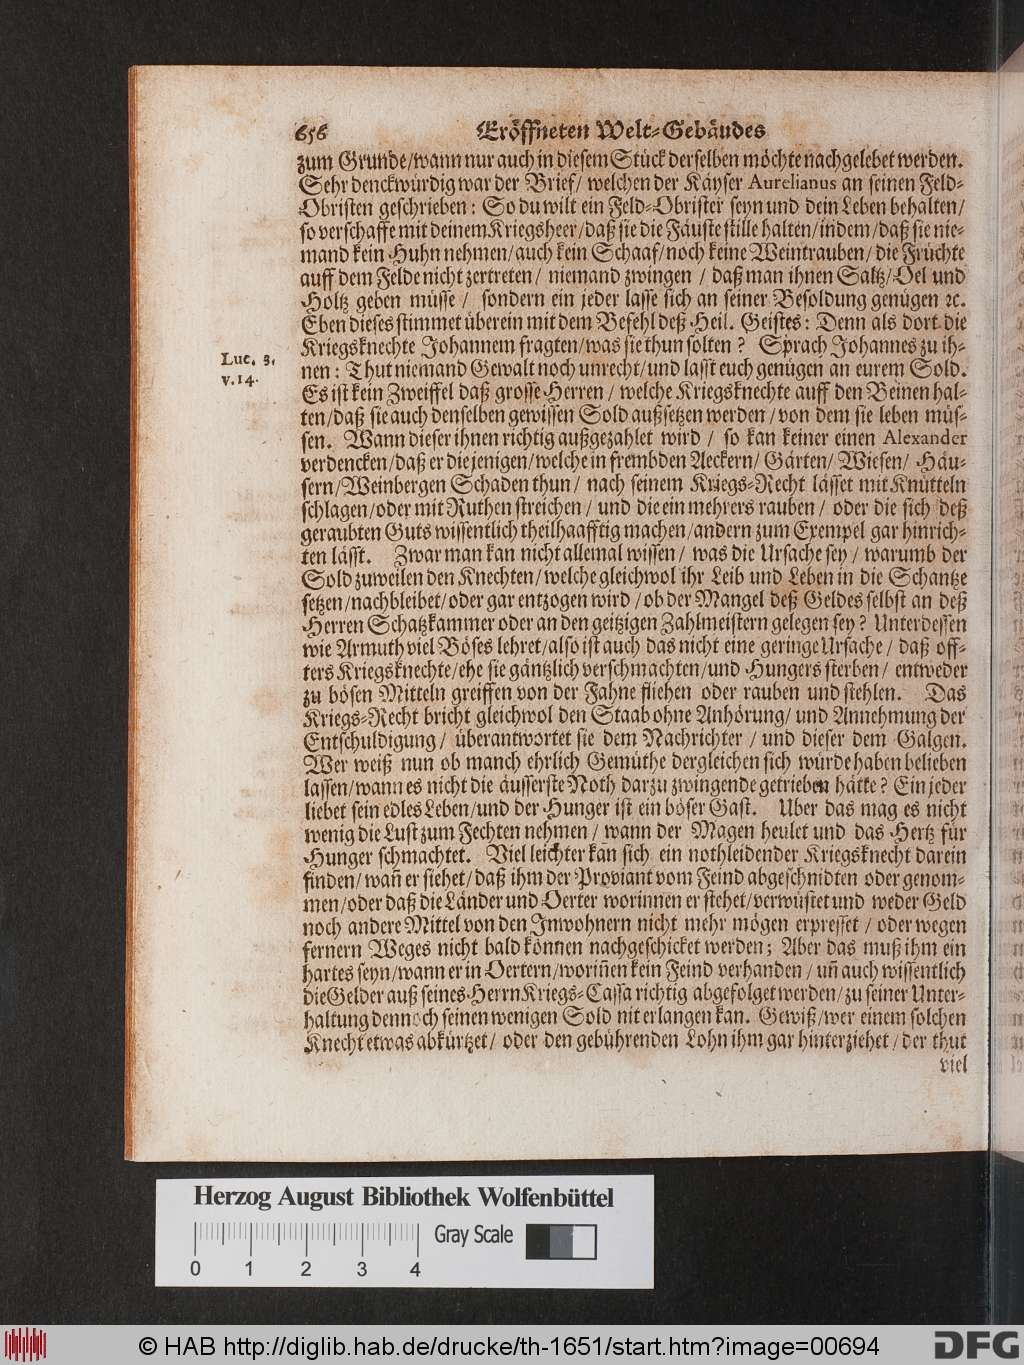 656 Eröffneten Welt-Gebäudes
zum Grunde/wann nur auch in diesem Stück derselben möchte nachgelebet werden.
Sehr denckwürdig war der Brief/ welchen der Käyser Aurelianus an seinen Feld-
Obristen geschrieben: So du wilt ein Feld-Obrister seyn und dein Leben behalten/
so verschaffe mit deinem Kriegsheer/daß sie die Fäuste stille halten/indem/daß sie nie-
mand kein Huhn nehmen/auch kein Schaaf/noch keine Weintrauben/ die Früchte
auff dem Felde nicht zertreten/ niemand zwingen / daß man ihnen Saltz/Oel und
Holtz geben müsse / sondern ein jeder lasse sich an seiner Besoldung genügen ꝛc.
Eben dieses stimmet überein mit dem Befehl deß Heil. Geistes: Denn als dort die
Kriegsknechte Johannem fragten/was sie thun solten? Sprach Johannes zu ih-
Luc. 3.
v. 14.
nen: Thut niemand Gewalt noch unrecht/und lasst euch genügen an eurem Sold.
Es ist kein Zweiffel daß grosse Herren / welche Kriegsknechte auff den Beinen hal-
ten/daß sie auch denselben gewissen Sold außsetzen werden/von dem sie leben müs-
sen. Wann dieser ihnen richtig außgezahlet wird / so kan keiner einen Alexander
verdencken/daß er diejenigen/welche in frembden Aeckern/ Gärten/ Wiesen/ Häu-
sern/Weinbergen Schaden thun/ nach seinem Kriegs-Recht lässet mit Knütteln
schlagen/oder mit Ruthen streichen/ und die ein mehrers rauben/ oder die sich deß
geraubten Guts wissentlich theilhaafftig machen/andern zum Exempel gar hinrich-
ten lässt. Zwar man kan nicht allemal wissen / was die Ursache sey/ warumb der
Sold zuweilen den Knechten/welche gleichwol ihr Leib und Leben in die Schantze
setzen/nachbleibet/oder gar entzogen wird / ob der Mangel deß Geldes selbst an deß
Herren Schatzkammer oder an den geitzigen Zahlmeistern gelegen sey? Unterdessen
wie Armuth viel Böses lehret/also ist auch das nicht eine geringe Ursache / daß öff-
ters Kriegsknechte/ehe sie gäntzlich verschmachten/und Hungers sterben/ entweder
zu bösen Mitteln greiffen von der Fahne fliehen oder rauben und stehlen. Das
Kriegs-Recht bricht gleichwol den Staab ohne Anhörung/ und Annehmung der
Entschuldigung/ überantwortet sie dem Nachrichter / und dieser dem Galgen.
Wer weiß nun ob manch ehrlich Gemüthe dergleichen sich würde haben belieben
lassen/wann es nicht die äusserste Noth darzu zwingende getrieben hätte? Ein jeder
liebet sein edles Leben/und der Hunger ist ein böser Gast. Uber das mag es nicht
wenig die Lust zum Fechten nehmen / wann der Magen heulet und das Hertz für
Hunger schmachtet. Viel leichter kan̄ sich ein nothleidender Kriegsknecht darein
finden/ wan̄ er siehet/daß ihm der Proviant vom Feind abgeschnidten oder genom-
men/oder daß die Länder und Oerter worinnen er stehet/verwüstet und weder Geld
noch andere Mittel von den Inwohnern nicht mehr mögen erpresset / oder wegen
fernern Weges nicht bald können nachgeschicket werden; Aber das muß ihm ein
hartes seyn/wann er in Oertern/worin̄en kein Feind verhanden / un̄ auch wissentlich
die Gelder auß seines Herrn Kriegs-Cassa richtig abgefolget werden/zu seiner Unter-
haltung dennoch seinen wenigen Sold nit erlangen kan. Gewiß/wer einem solchen
Knecht etwas abkürtzet/ oder den gebührenden Lohn ihm gar hinterziehet/der thut
viel
Herzog August Bibliothek Wolfenbüttel
Gray Scale
0 1 2 3 4
© HAB http://diglib.hab.de/drucke/th-1651/start.htm?image=00694
DFG